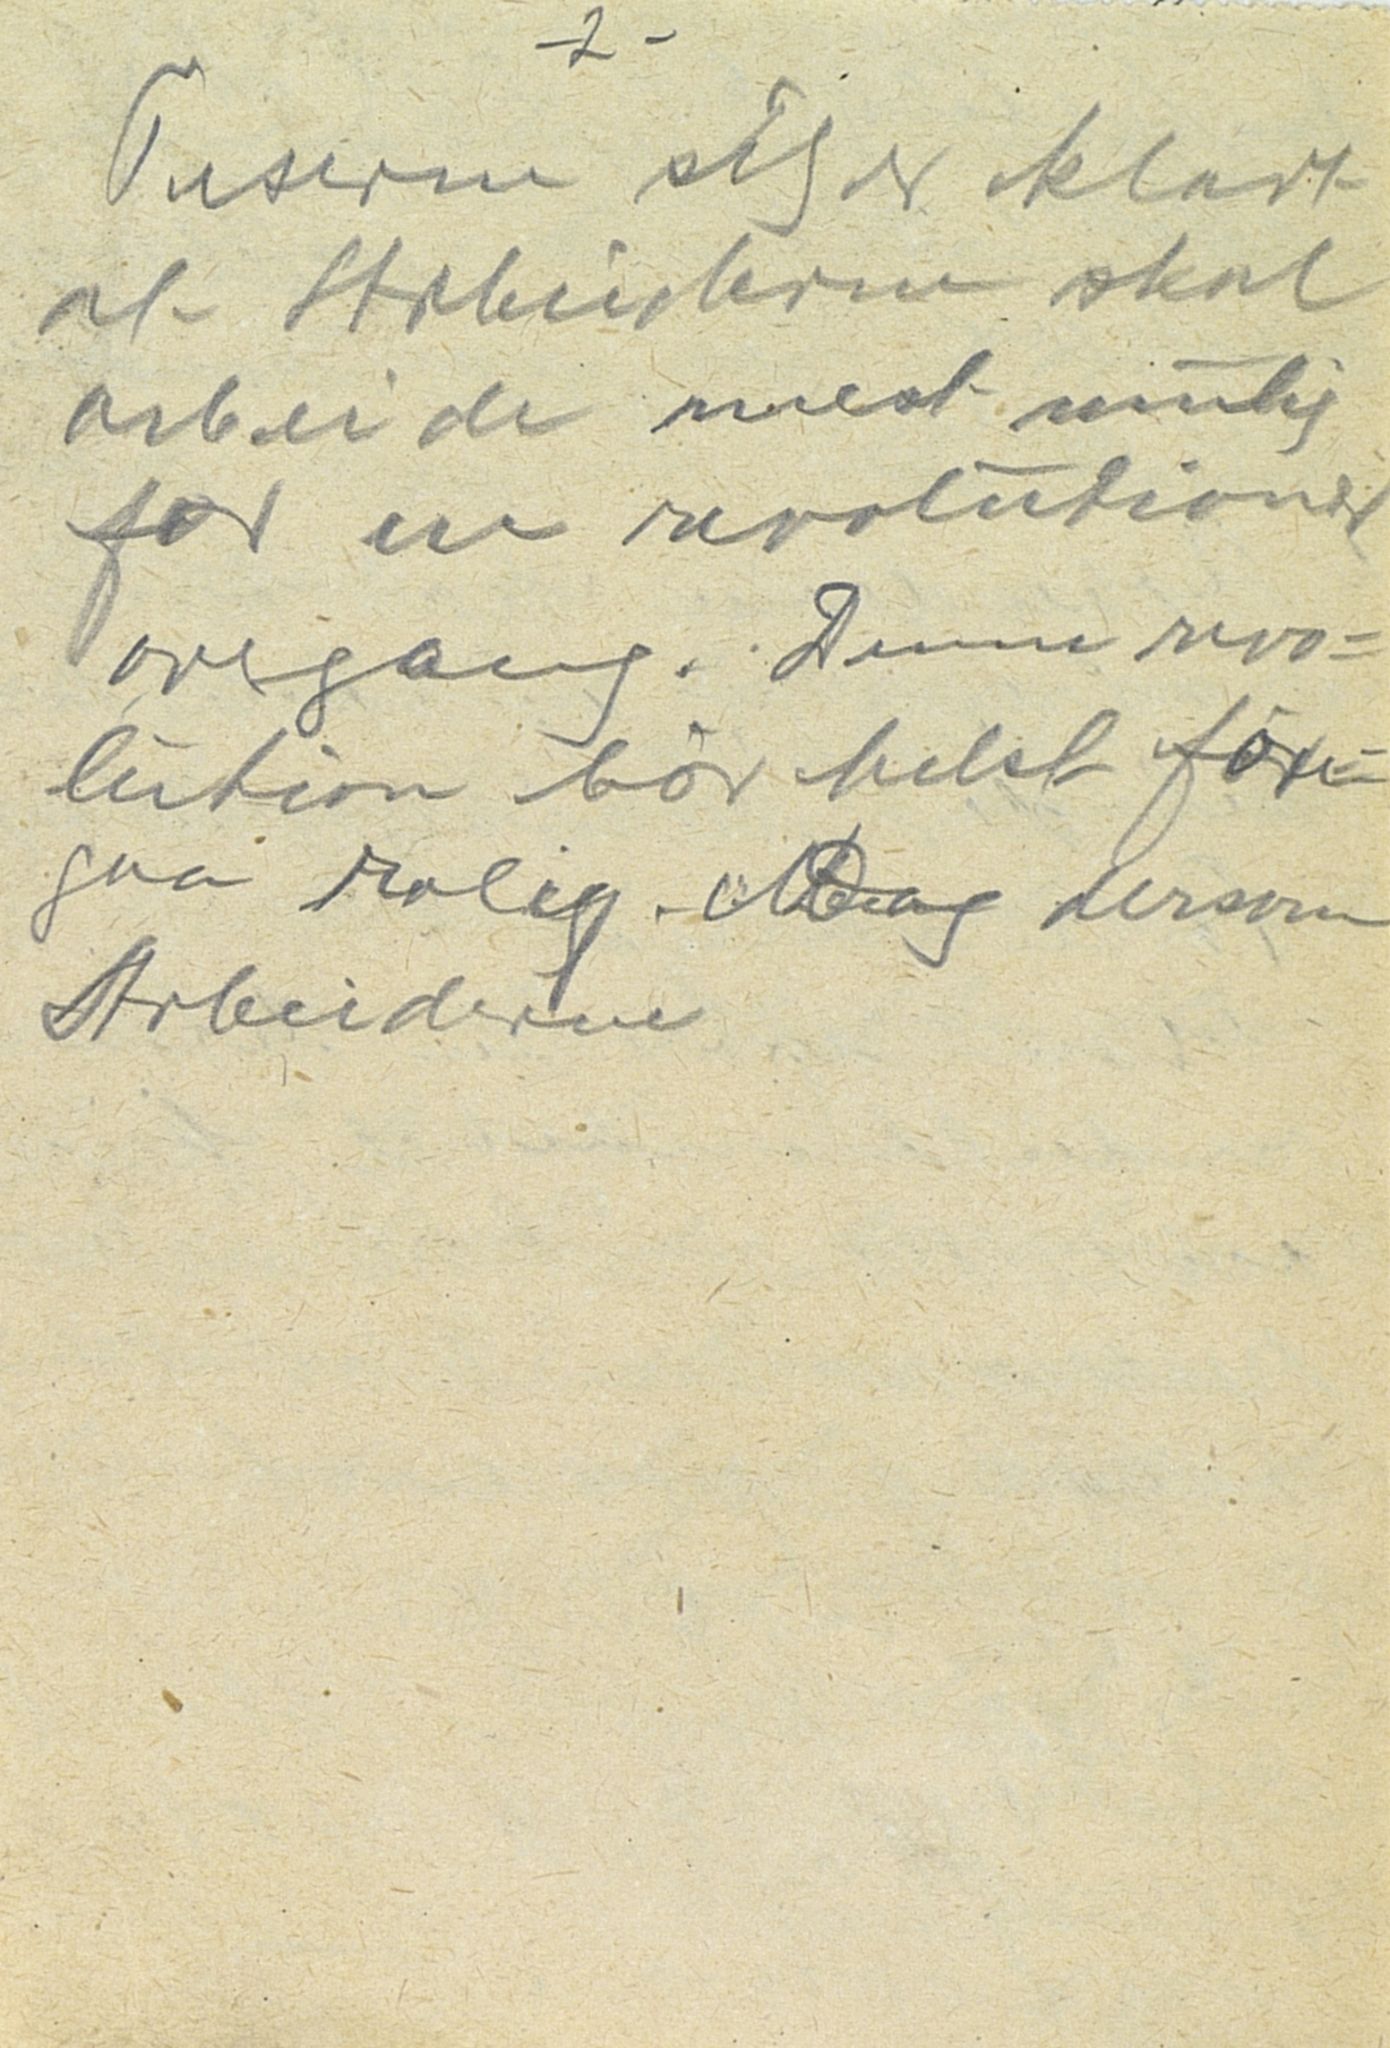 -2-
Teserne siger klart
at Arbeiderne skal
arbeide mest mulig
for en revolutionær
overgang. Denne revo=
lution bør helst fore=
gaa rolig. dersom
Arbeiderne